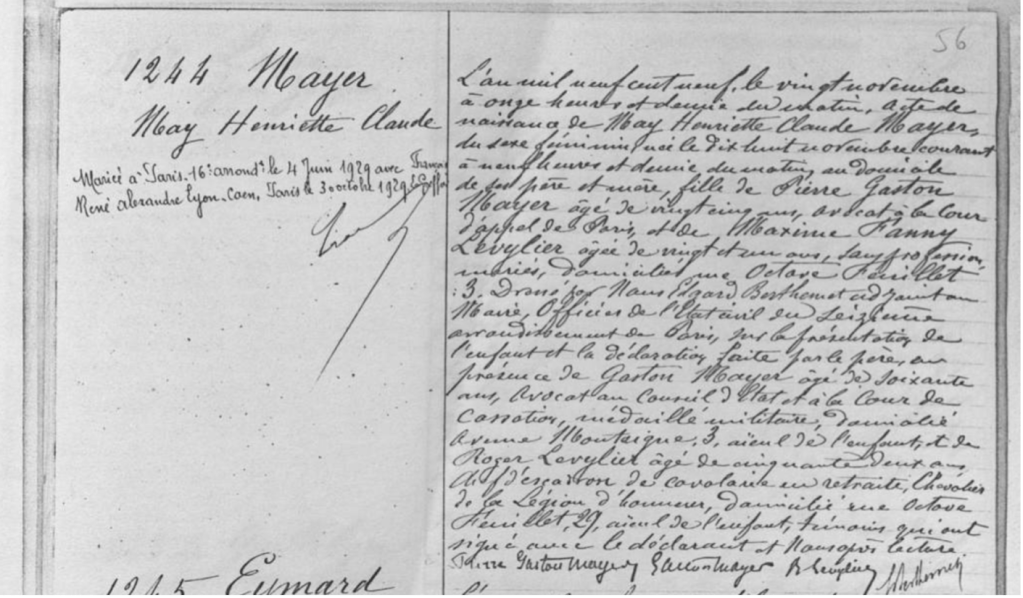 56
1244 Mayer
May Henriette Claude
Mariée à Paris 16e arrondt le 4 Juin 1929 avec François
René Alexandre Lyon-Caen, Paris le 3 octobre 1929
L'an mil neuf cent neuf, le vingt novembre
à onze heures et demie du matin, Acte de
naissance de May Henriette Claude Mayer,
du sexe féminin, née le dix huit novembre courant
à neuf heures et demie du matin, au domicile
de ses père et mère, fille de Pierre Gaston
Mayer âgé de vingt cinq ans, avocat à la Cour
d'appel de Paris, et de Maxime Fanny
Levylier âgée de vingt et un ans, sans profession,
mariés, domiciliés rue Octave Feuillet
3. Dressé par Nous Edgard Berthemet adjoint au
Maire, Officier de l'Etat civil du seizième
arrondissement de Paris, sur la présentation de
l'enfant et la déclaration faite par le père, en
présence de Gaston Mayer âgé de soixante
ans, avocat au Conseil d'Etat et à la Cour de
Cassation, médaillé militaire, domicilié
avenue Montaigne, 3, aïeul de l'enfant, et de
Roger Levylier âgé de cinquante deux ans
chef d'escadron de cavalerie en retraite, Chevalier
de la Légion d'honneur, domicilié rue Octave
Feuillet, 29, aïeul de l'enfant, témoins qui ont
signé avec le déclarant et Nous après lecture.
Pierre Gaston Mayer Gaston Mayer R Levylier Berthemet
1245 Eymard